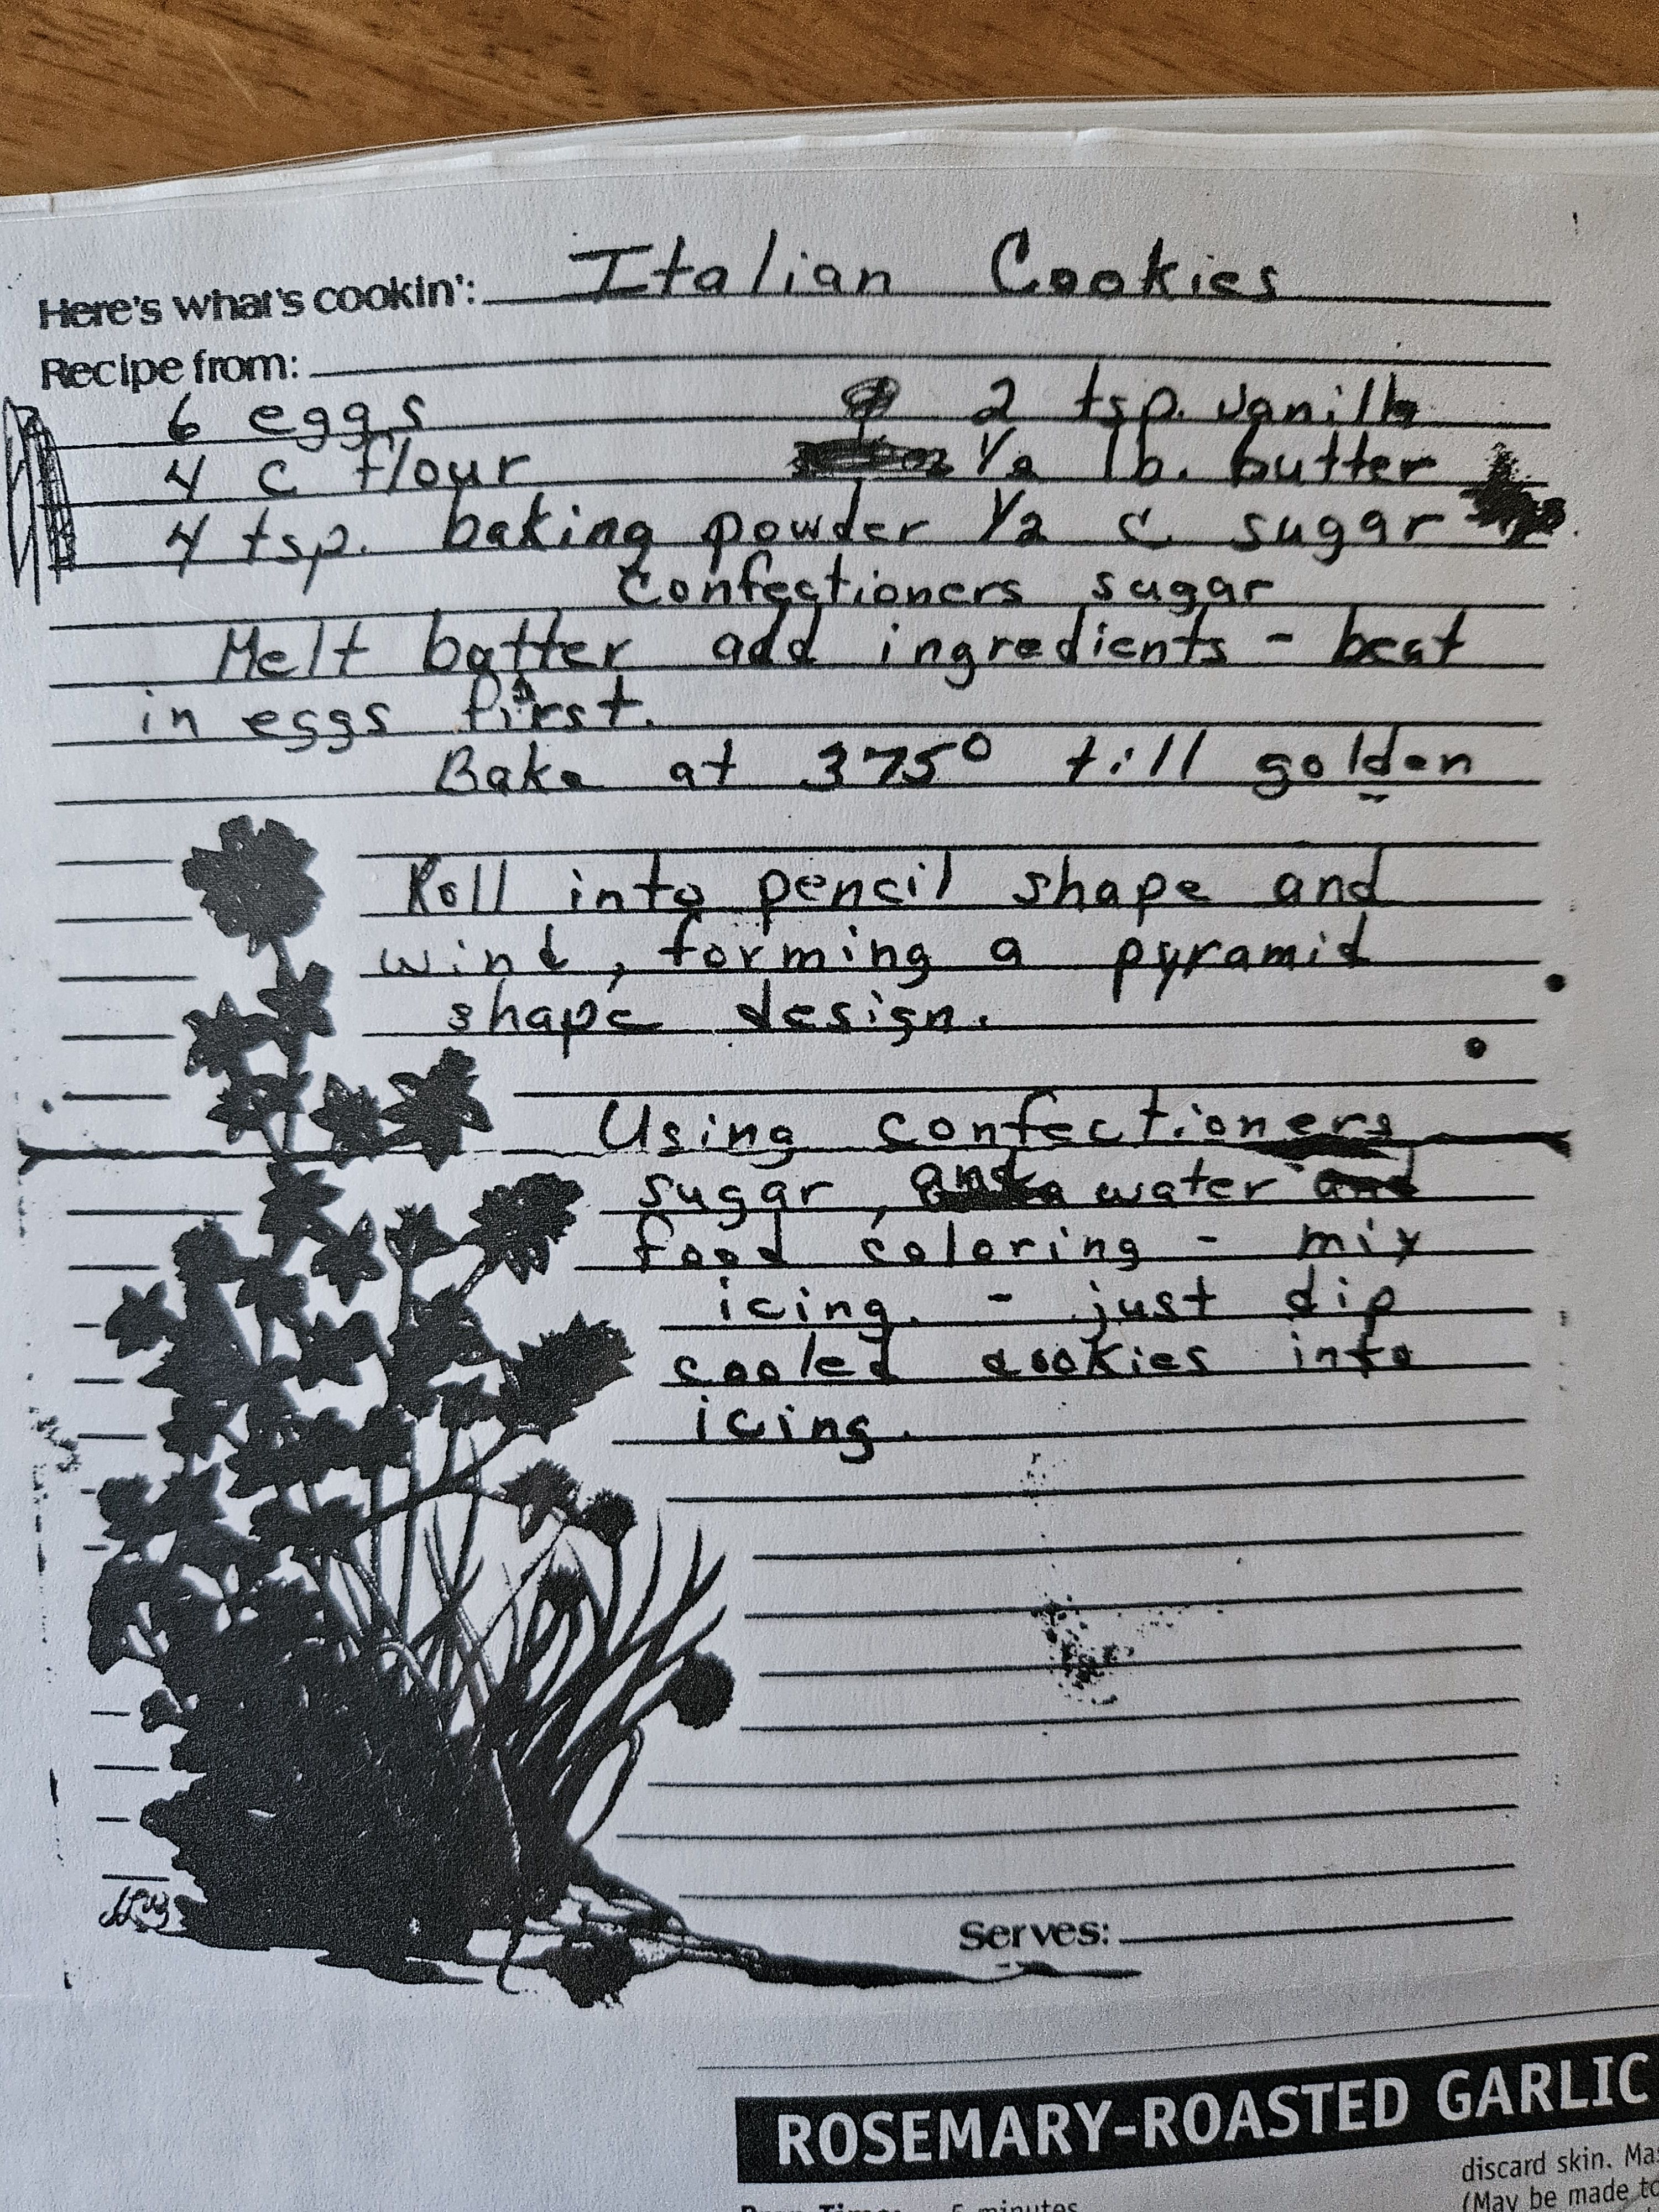 Here's what's cookin': Italian Cookies
Recipe from:
6 eggs 2 tsp. vanilla
4 c flour 1/2 lb. butter
4 tsp. baking powder 1/2 c sugar
Confectioners sugar
Melt butter add ingredients - beat
in eggs first.
Bake at 375° till golden
Roll into pencil shape and
wind, forming a pyramid
shape design.
Using confectioners
sugar, and water and
food coloring - mix
icing. - just dip
cooled cookies into
icing.
Serves:
ROSEMARY-ROASTED GARLIC
discard skin.
(May be made to
5 minutes